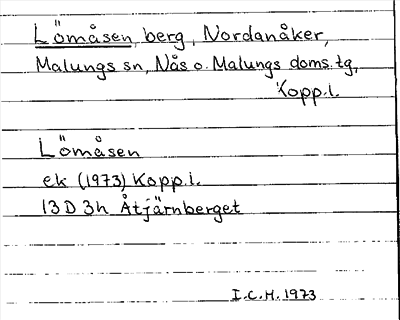 Lömåsen, berg, Nordanåker,
Malungs sn, Nås o. Malungs doms.tg,
Kopp.l.
Lömåsen
ek (1973) Kopp.l.
13 D 3h Åtjärnberget
I.C.H. 1973